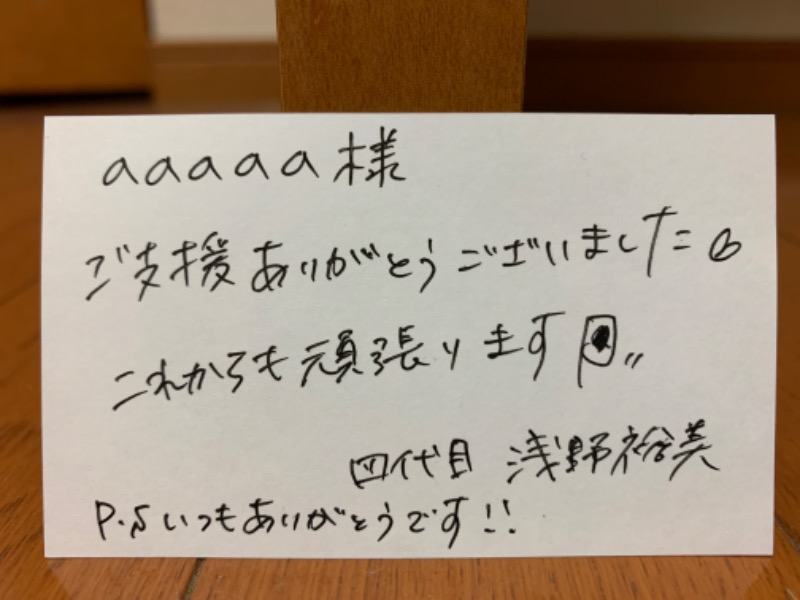 aaaaa様
ご支援ありがとうございました。
これからも頑張ります
四代目 浅野裕美
P.S いつもありがとうです!!